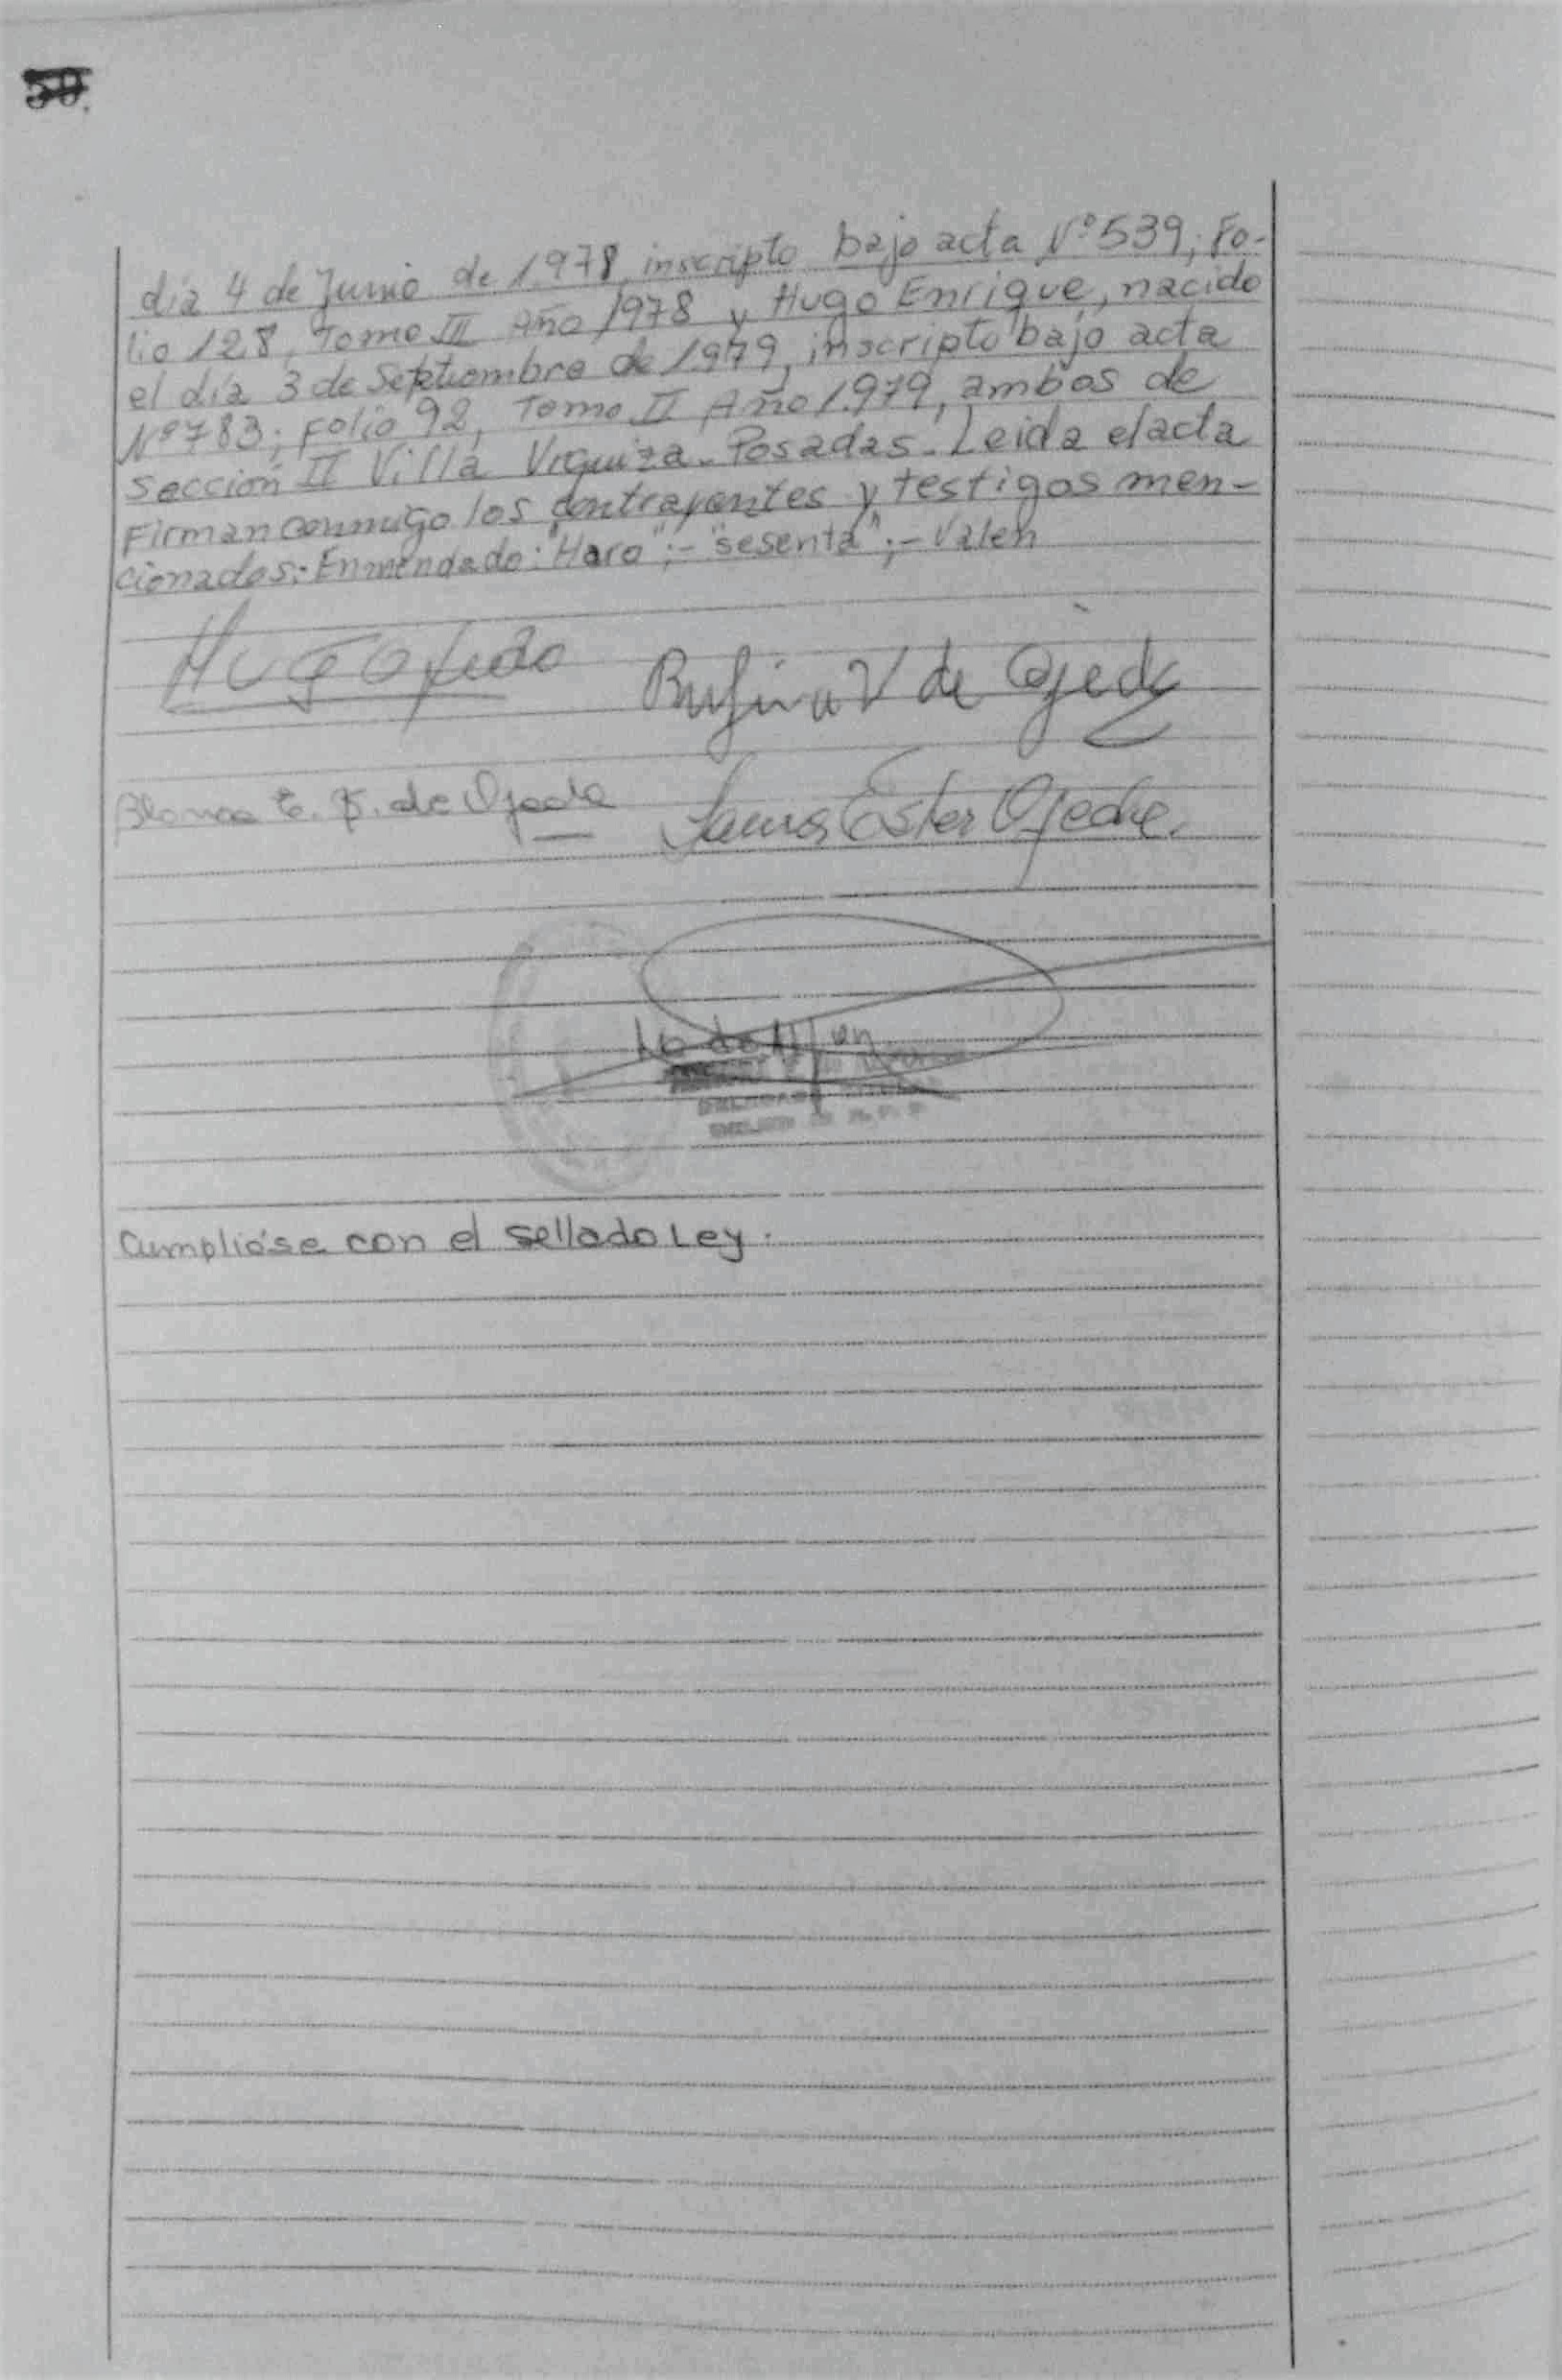 50.
día 4 de Junio de 1.978, inscripto bajo acta Nº 539; Fo-
lio 128, Tomo III Año 1978 y Hugo Enrique, nacido
el día 3 de Septiembre de 1.979, inscripto bajo acta
Nº 783; Folio 92, Tomo II Año 1.979, ambos de
Sección II Villa Urquiza - Posadas. Leida el acta
Firman conmigo los contrayentes y testigos men-
cionados: Enmendado: "Haro"; - "sesenta"; - Valen
Hug Ojeda
Rufina V de Ojeda
Blanca E. de Ojeda
Ester Ojeda.
Cumplióse con el sellado Ley.